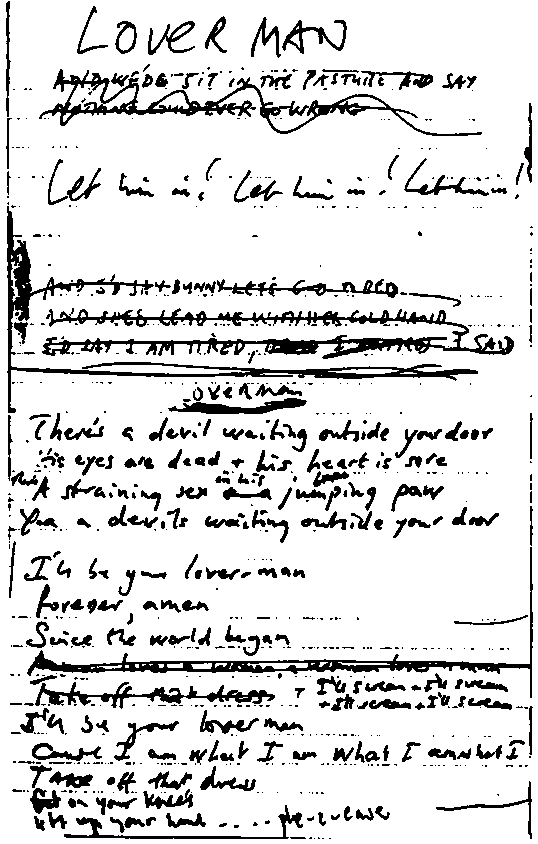 LOVER MAN
AND WE'DE SIT IN THE PASTURE AND SAY
NOTHING COULD EVER GO WRONG
Let him in! Let him in! Let him in!
AND I'D SAY BUNNY LETS GO TO BED
AND SHE'D LEAD ME WITH HER COLD HAND
I'D SAY I AM TIRED, I SAID
LOVERMAN
There's a devil waiting outside your door
His eyes are dead + his heart is sore
A straining sex in his jumping paw
Yea a devils waiting outside your door
I'll be your lover-man
forever, amen
Since the world began
loves a woman, a woman loves a man
Take off that dress + I'll scream + I'll scream
+ I'll scream + I'll scream
I'll be your loverman
Cause I am what I am what I am what I
TAKE off that dress
Get on your knees
your